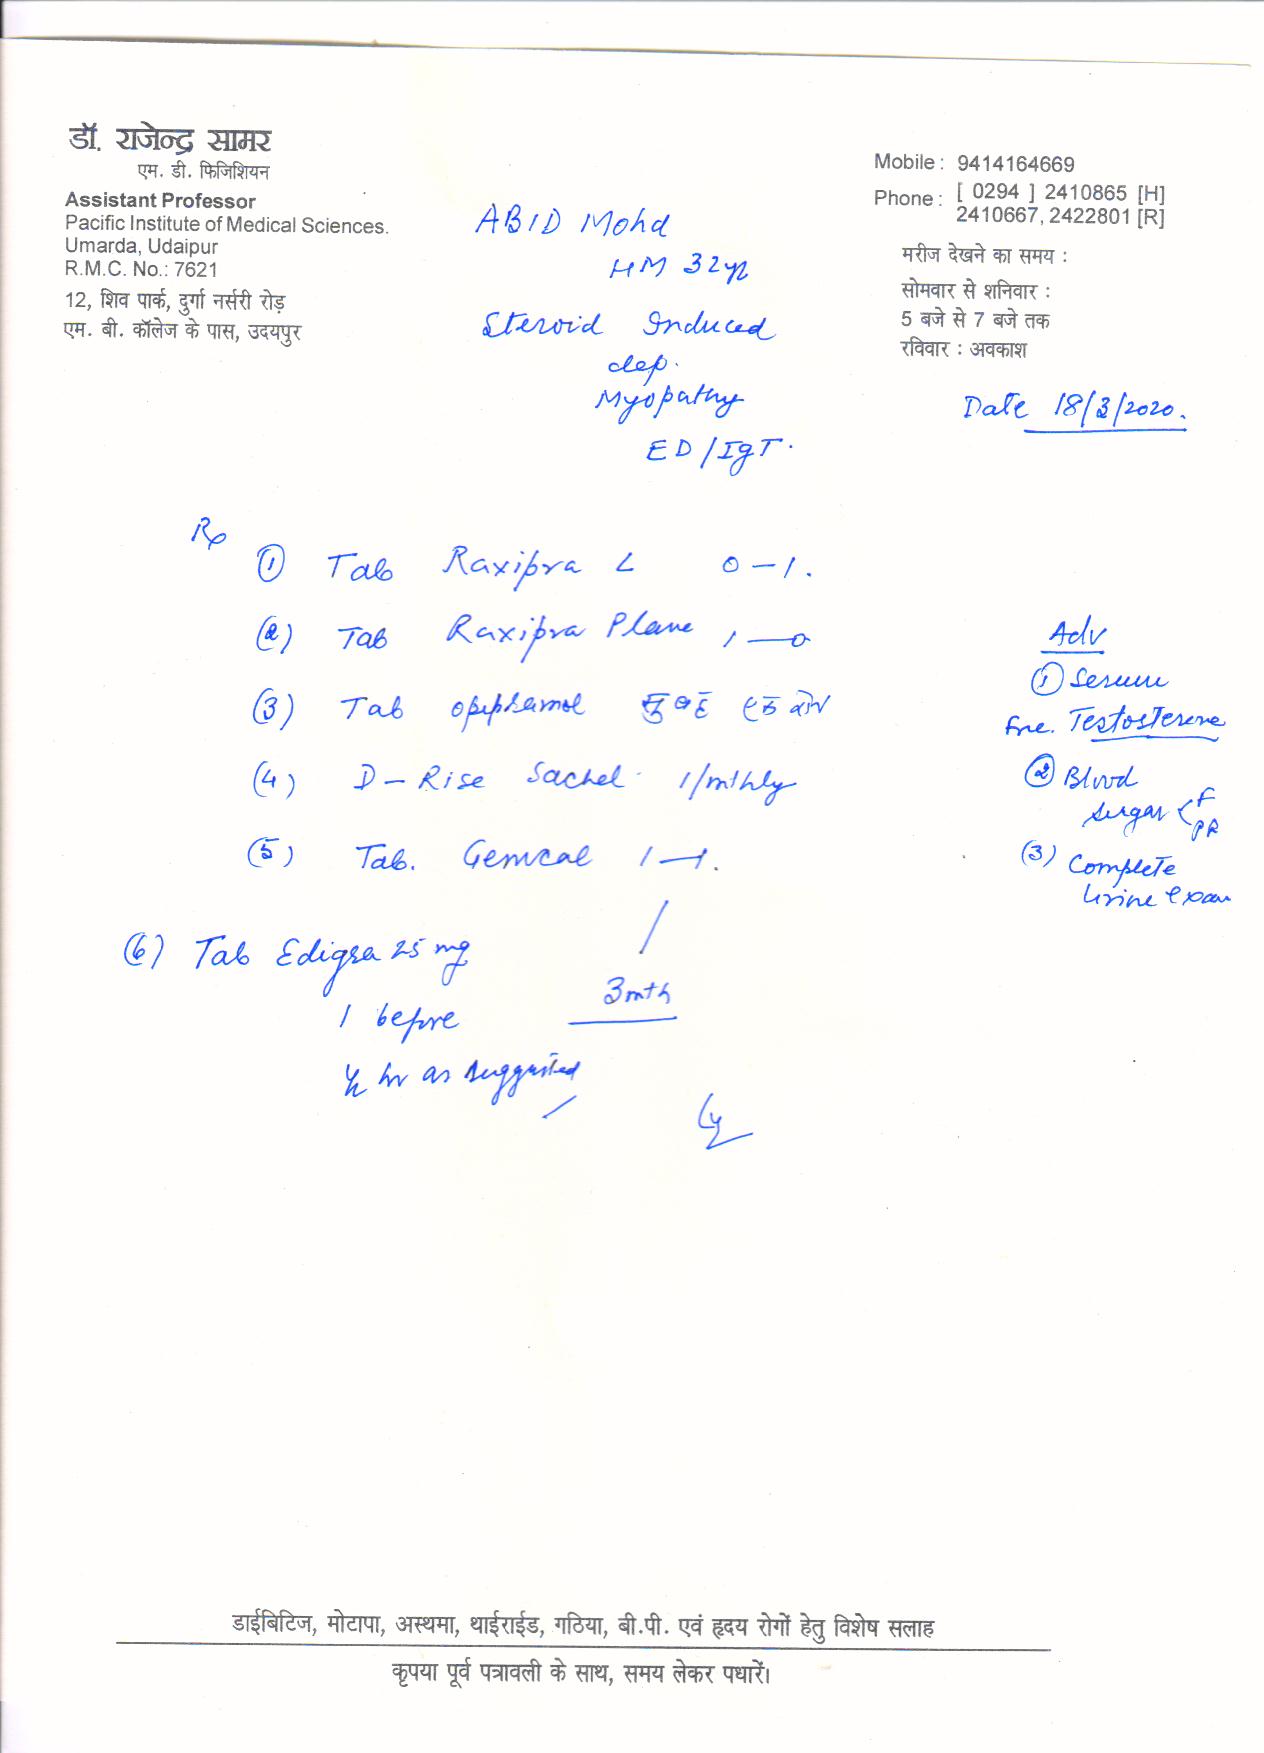 डॉ. राजेन्द्र सामर
एम. डी. फिजिशियन
Assistant Professor
Pacific Institute of Medical Sciences.
Umarda, Udaipur
R.M.C. No.: 7621
12, शिव पार्क, दुर्गा नर्सरी रोड़
एम. बी. कॉलेज के पास, उदयपुर
Mobile : 9414164669
Phone : [ 0294 ] 2410865 [H]
2410667, 2422801 [R]
मरीज देखने का समय :
सोमवार से शनिवार :
5 बजे से 7 बजे तक
रविवार : अवकाश
ABID Mohd
HM 32yr
Steroid Induced
dep.
Myopathy
ED/IgT.
Date 18/3/2020.
Rx
(1) Tab Raxipra L 0-1.
(2) Tab Raxipra Plane 1-0
(3) Tab opiphamol सुबह एक शाम
(4) D-Rise Sachel 1/mthly
(5) Tab. Gemcal 1-1.
3mth
(6) Tab Edigra 25 mg
1 before
1/2 hr as suggested
Adv
(1) Serum
Free. Testosterene
(2) Blood
sugar < F
PR
(3) Complete
Urine exam
डाईबिटिज, मोटापा, अस्थमा, थाईराईड, गठिया, बी.पी. एवं हृदय रोगों हेतु विशेष सलाह
कृपया पूर्व पत्रावली के साथ, समय लेकर पधारें।